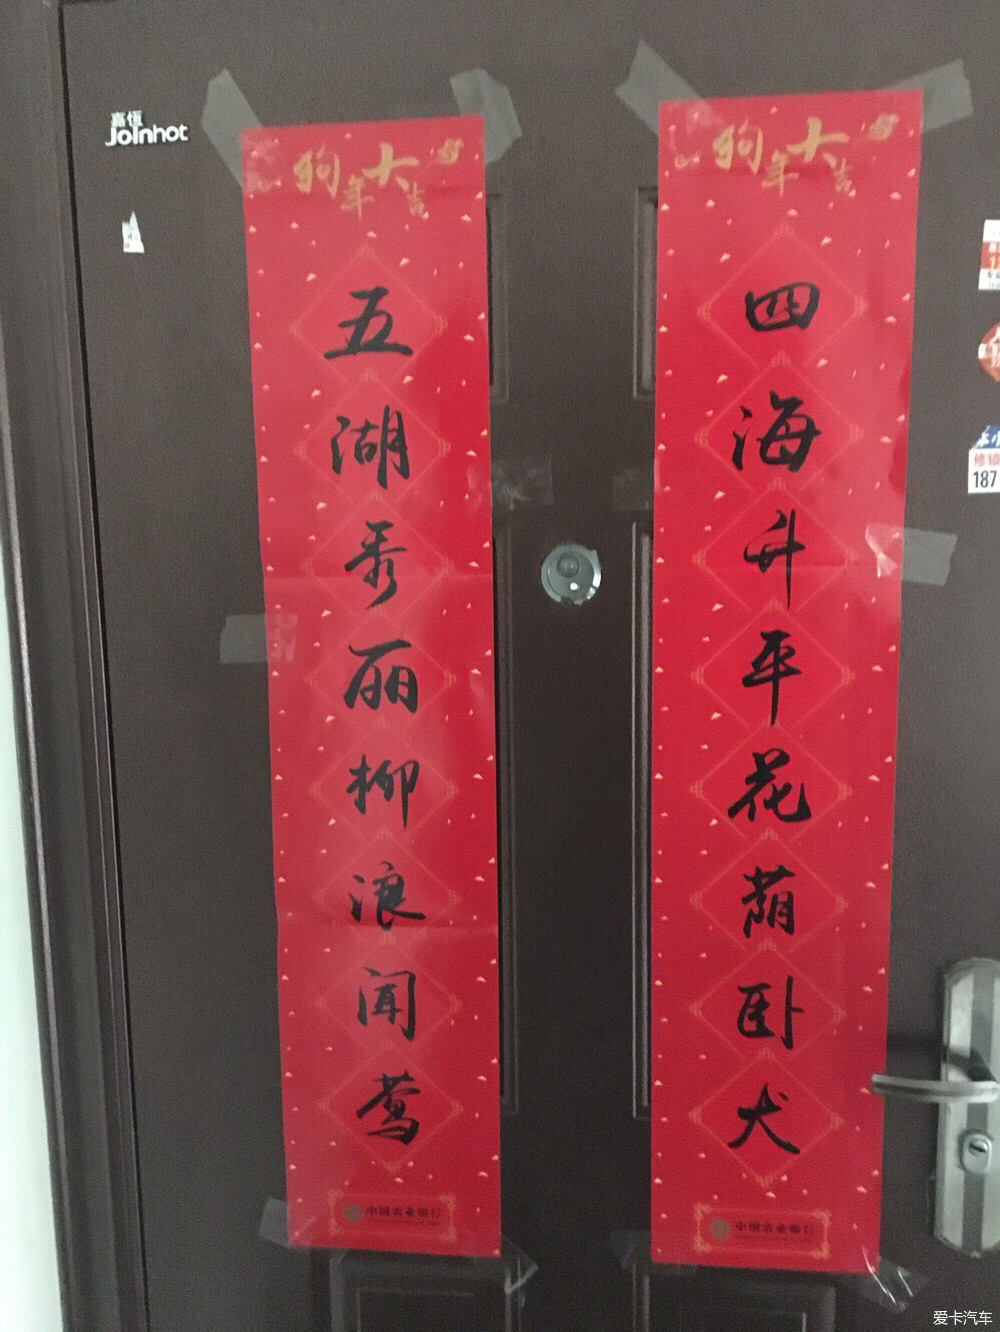 嘉恒
Joinhot
狗年大吉
四海升平花荫卧犬
中国农业银行
狗年大吉
五湖秀丽柳浪闻莺
中国农业银行
187
爱卡汽车